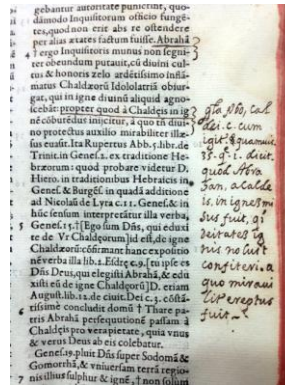 gebantur autoritate punirent, quo-
dāmodo Inquisitorum officio fungē-
tes, quod non erit abs re ostendere
per alias ætates factum fuisse. Abrahā
† ergo Inquisitoris munus non segni-
ter obeundum putauit, cū diuini cul-
tus & honoris zelo ardētissimo inflā-
matus Chaldæorū Idololatriā obiur-
gat, qui in igne diuinū aliquid agno-
icebāt: propter quod à Chaldeis in ig
nē cōburēdus iniicitur, à quo tñ diui-
no protectus auxilio mirabiliter illæ-
sus euasit. Ita Rupertus Abb. 5. lib. de
Trinit. in Genes. 1. ex traditione He-
bræorum: quod probare videtur D.
Hiero. in traditionibus Hebraicis in
Genes. & Burgēs. in quadā additione
ad Nicolaū de Lyra c. 11. Genes. & in
hūc sensum interpretātur illa verba,
5 Genes. 15. † [Ego sum Dñs, qui edu xi
te de Vr Chaldæorum] id est, de igne
Chaldæorū: cōfirmant hanc expositio
nē verba illa lib. 1. Esdrę c. 9. [tu ipse es
Dñs Deus, qui elegisti Abrahā, & edu
xisti eū de igne Chaldæorū] D. etiam
August. lib. 12. de ciuit. Dei c. 3. cōstā-
6 tissimè concludit domū † Thare pa-
tris Abrahā persequutionē passam à
Chaldęis pro verapietate, quia vnus
& verus Deus ab eis colebatur.
Genes. 19. pluit Dñs super Sodomā &
Gomorrhā, & vniuersam terrā regio-
7 nis illius sulphur & ignē, † non solum
dei. c. cum
igit. quamuis
35. q. 1. dicit.
quod Abra
ham, a calde
is, in ignē mis
sus fuit, qi
deitatē ig
nis noluit
confiteri. a
quo miracu
lit ereptus
fuit